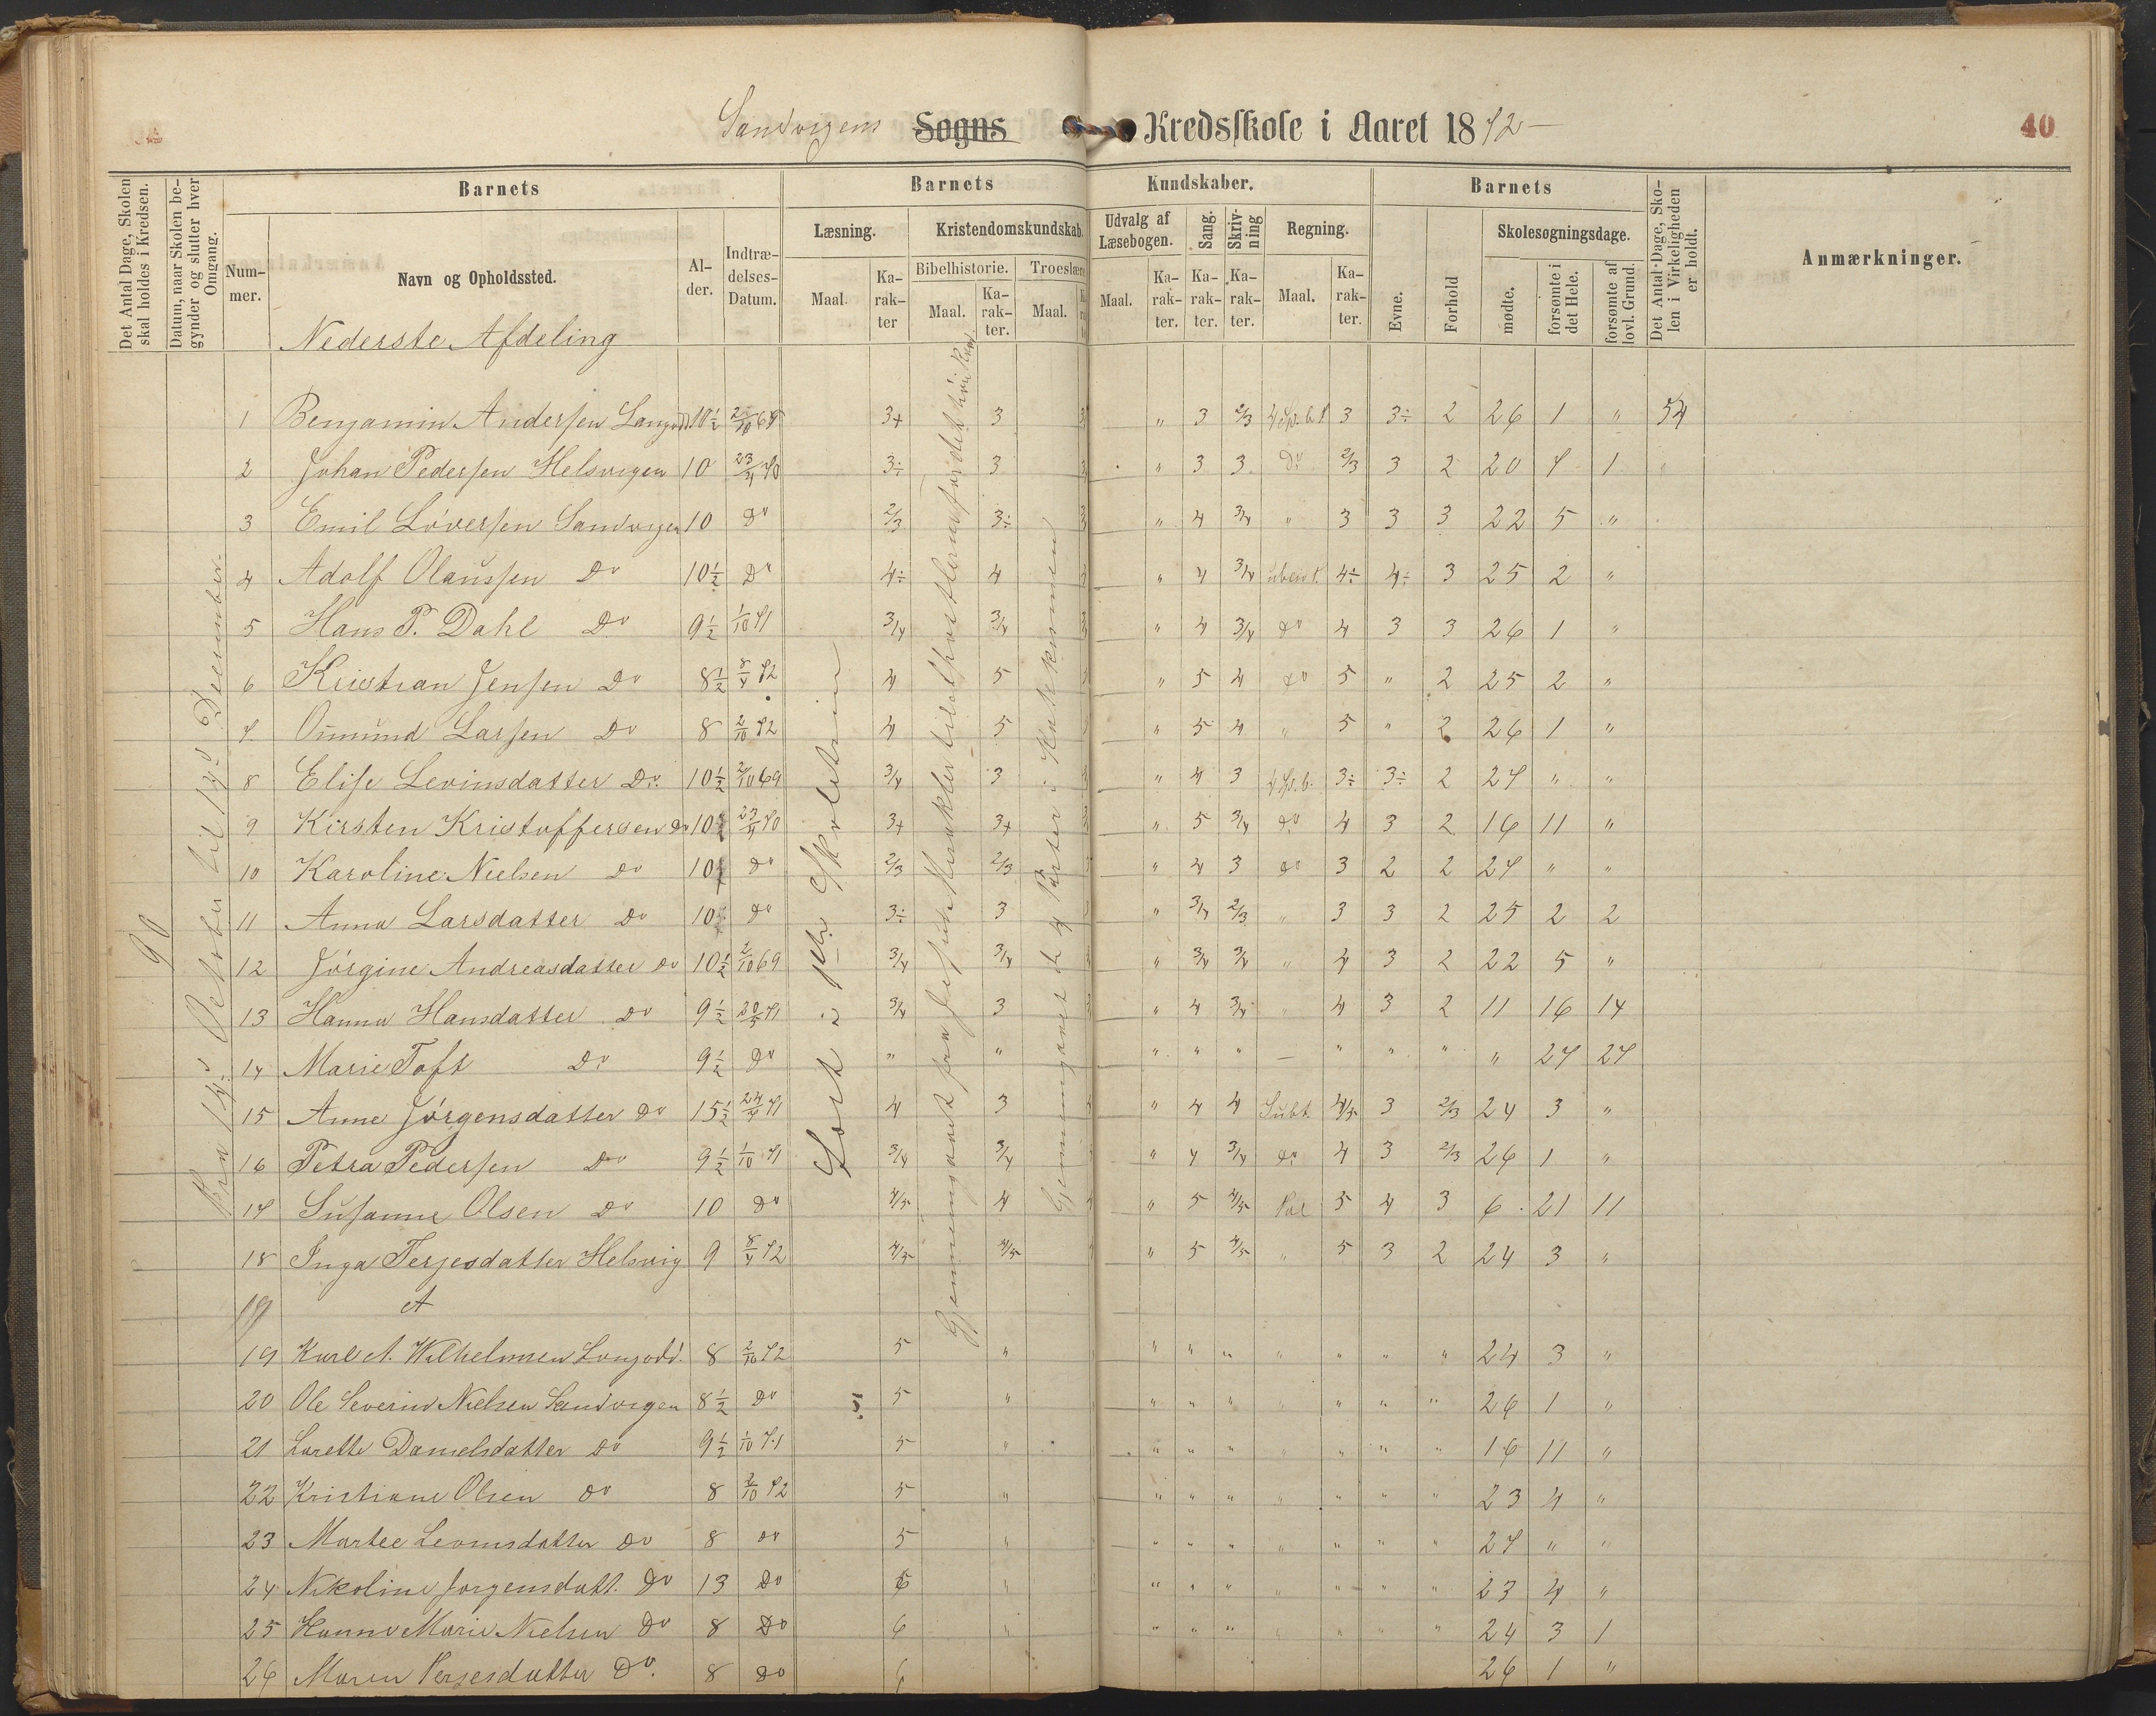 Sandvigens Sogns Kredsskole i Aaret 1872
40
Det Antal Dage, Skolen skal holdes i Kredsen.
Datum, naar Skolen begynder og slutter hver Omgang.
Barnets
Barnets
Kundskaber.
Barnets
Det Antal Dage, Skolen i Virkeligheden er holdt.
Anmærkninger.
Nummer.
Navn og Opholdssted.
Alder.
Indtrædelses-Datum.
Læsning.
Kristendomskundskab.
Udvalg af Læsebogen.
Sang.
Skrivning
Regning.
Evne.
Forhold
Skolesøgningsdage.
Maal.
Karakter
Bibelhistorie.
Troeslære
Maal.
Karakter.
Maal.
Maal.
Karakter.
Karakter.
Karakter.
Maal.
Karakter.
mødte.
forsømte i det Hele.
forsømte af lovl. Grund.
Nederste Afdeling
90
Fra 14de October til 17de December
Læst i Skoletrin
Gjennemgaaet de 4 Parter i Katekismen
1 Benjamin Andersen Langodd 10½ 2/10 69 3+ 3 " 3 2/3 3 3÷ 2 26 1 " 54
2 Johan Pedersen Helsvigen 10 23/4 70 3÷ 3 " 3 3 Do 2/3 3 2 20 7 1
3 Emil Löversen Sandvigen 10 Do 2/3 3÷ " 4 3/4 " 3 3 3 22 5 "
4 Adolf Olaussen Do 10½ Do 4÷ 4 " 4 3/4 4÷ 4÷ 3 25 2 "
5 Hans P. Dahl Do 9½ 1/10 71 3/4 3/4 " 4 3/4 Do 4 3 3 26 1 "
6 Kristian Jensen Do 8½ 8/4 72 4 5 " 5 4 Do 5 " 2 25 2 "
7 Omund Larsen Do 8 2/10 72 4 5 " 5 4 " 5 " 2 26 1 "
8 Elise Levinsdatter Do. 10½ 2/10 69 3/4 3 " 4 3 3÷ 3÷ 2 27 " "
9 Kirsten Kristoffersen Do 10 23/4 70 3+ 3+ " 5 3/4 Do 4 3 2 16 11 "
10 Karoline Nielsen Do 10 Do 2/3 2/3 " 4 3 Do 3 2 2 27 " "
11 Anna Larsdatter Do 10 Do 3÷ 3 " 3/4 2/3 " 3 3 2 25 2 2
12 Jörgine Andreasdatter Do 10½ 2/10 69 3/4 3/4 " 3/4 3/4 " 4 3 2 22 5 "
13 Hanna Hansdatter Do 9½ 3/4 3 " 4 3/4 " 4 3 2 11 16 14
14 Marie Toft Do 9½ Do " " " " " — " " " " 27 27
15 Anne Jörgensdatter Do 15½ 24/4 71 4 3 " 4 4 Subt. 4/5 3 2/3 24 3 "
16 Petra Pedersen Do 9½ 1/10 71 3/4 3/4 " 4 3/4 Do 4 3 2/3 26 1 "
17 Susanne Olsen Do 10 Do 4/5 4 " 5 4/5 5 4 3 6 21 11
18 Inga Terjesdatter Helsvig 9 8/4 72 4/5 4/5 " 5 4/5 " 5 3 2 24 3 "
19 A
19 Karl A. Wilhelmsen Langodd. 8 2/10 72 5 " " " " " " " " 24 3 "
20 Ole Severin Nielsen Sandvigen 8½ Do 5 " " " " " " " " 26 1 "
21 Lorette Danielsdatter Do 9½ 1/10 71 5 " " " " " " " " 16 11 "
22 Kristiane Olsen Do 8 2/10 72 5 " " " " " " " " 23 4 "
23 Martee Levinsdatter Do 8 Do 5 " " " " " " " " 27 " "
24 Nikoline Jorgensdatt. Do 13 Do " " " " " " " " 23 4 "
25 Hanna Marie Nielsen Do 8 Do 6 " " " " " " " " 24 3 1
26 Maren Terjesdatter Do. 8 Do 6 26 1 "